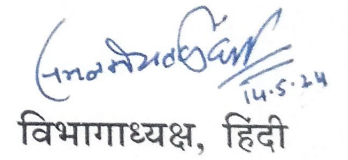 14.5.24
विभागाध्यक्ष, हिंदी